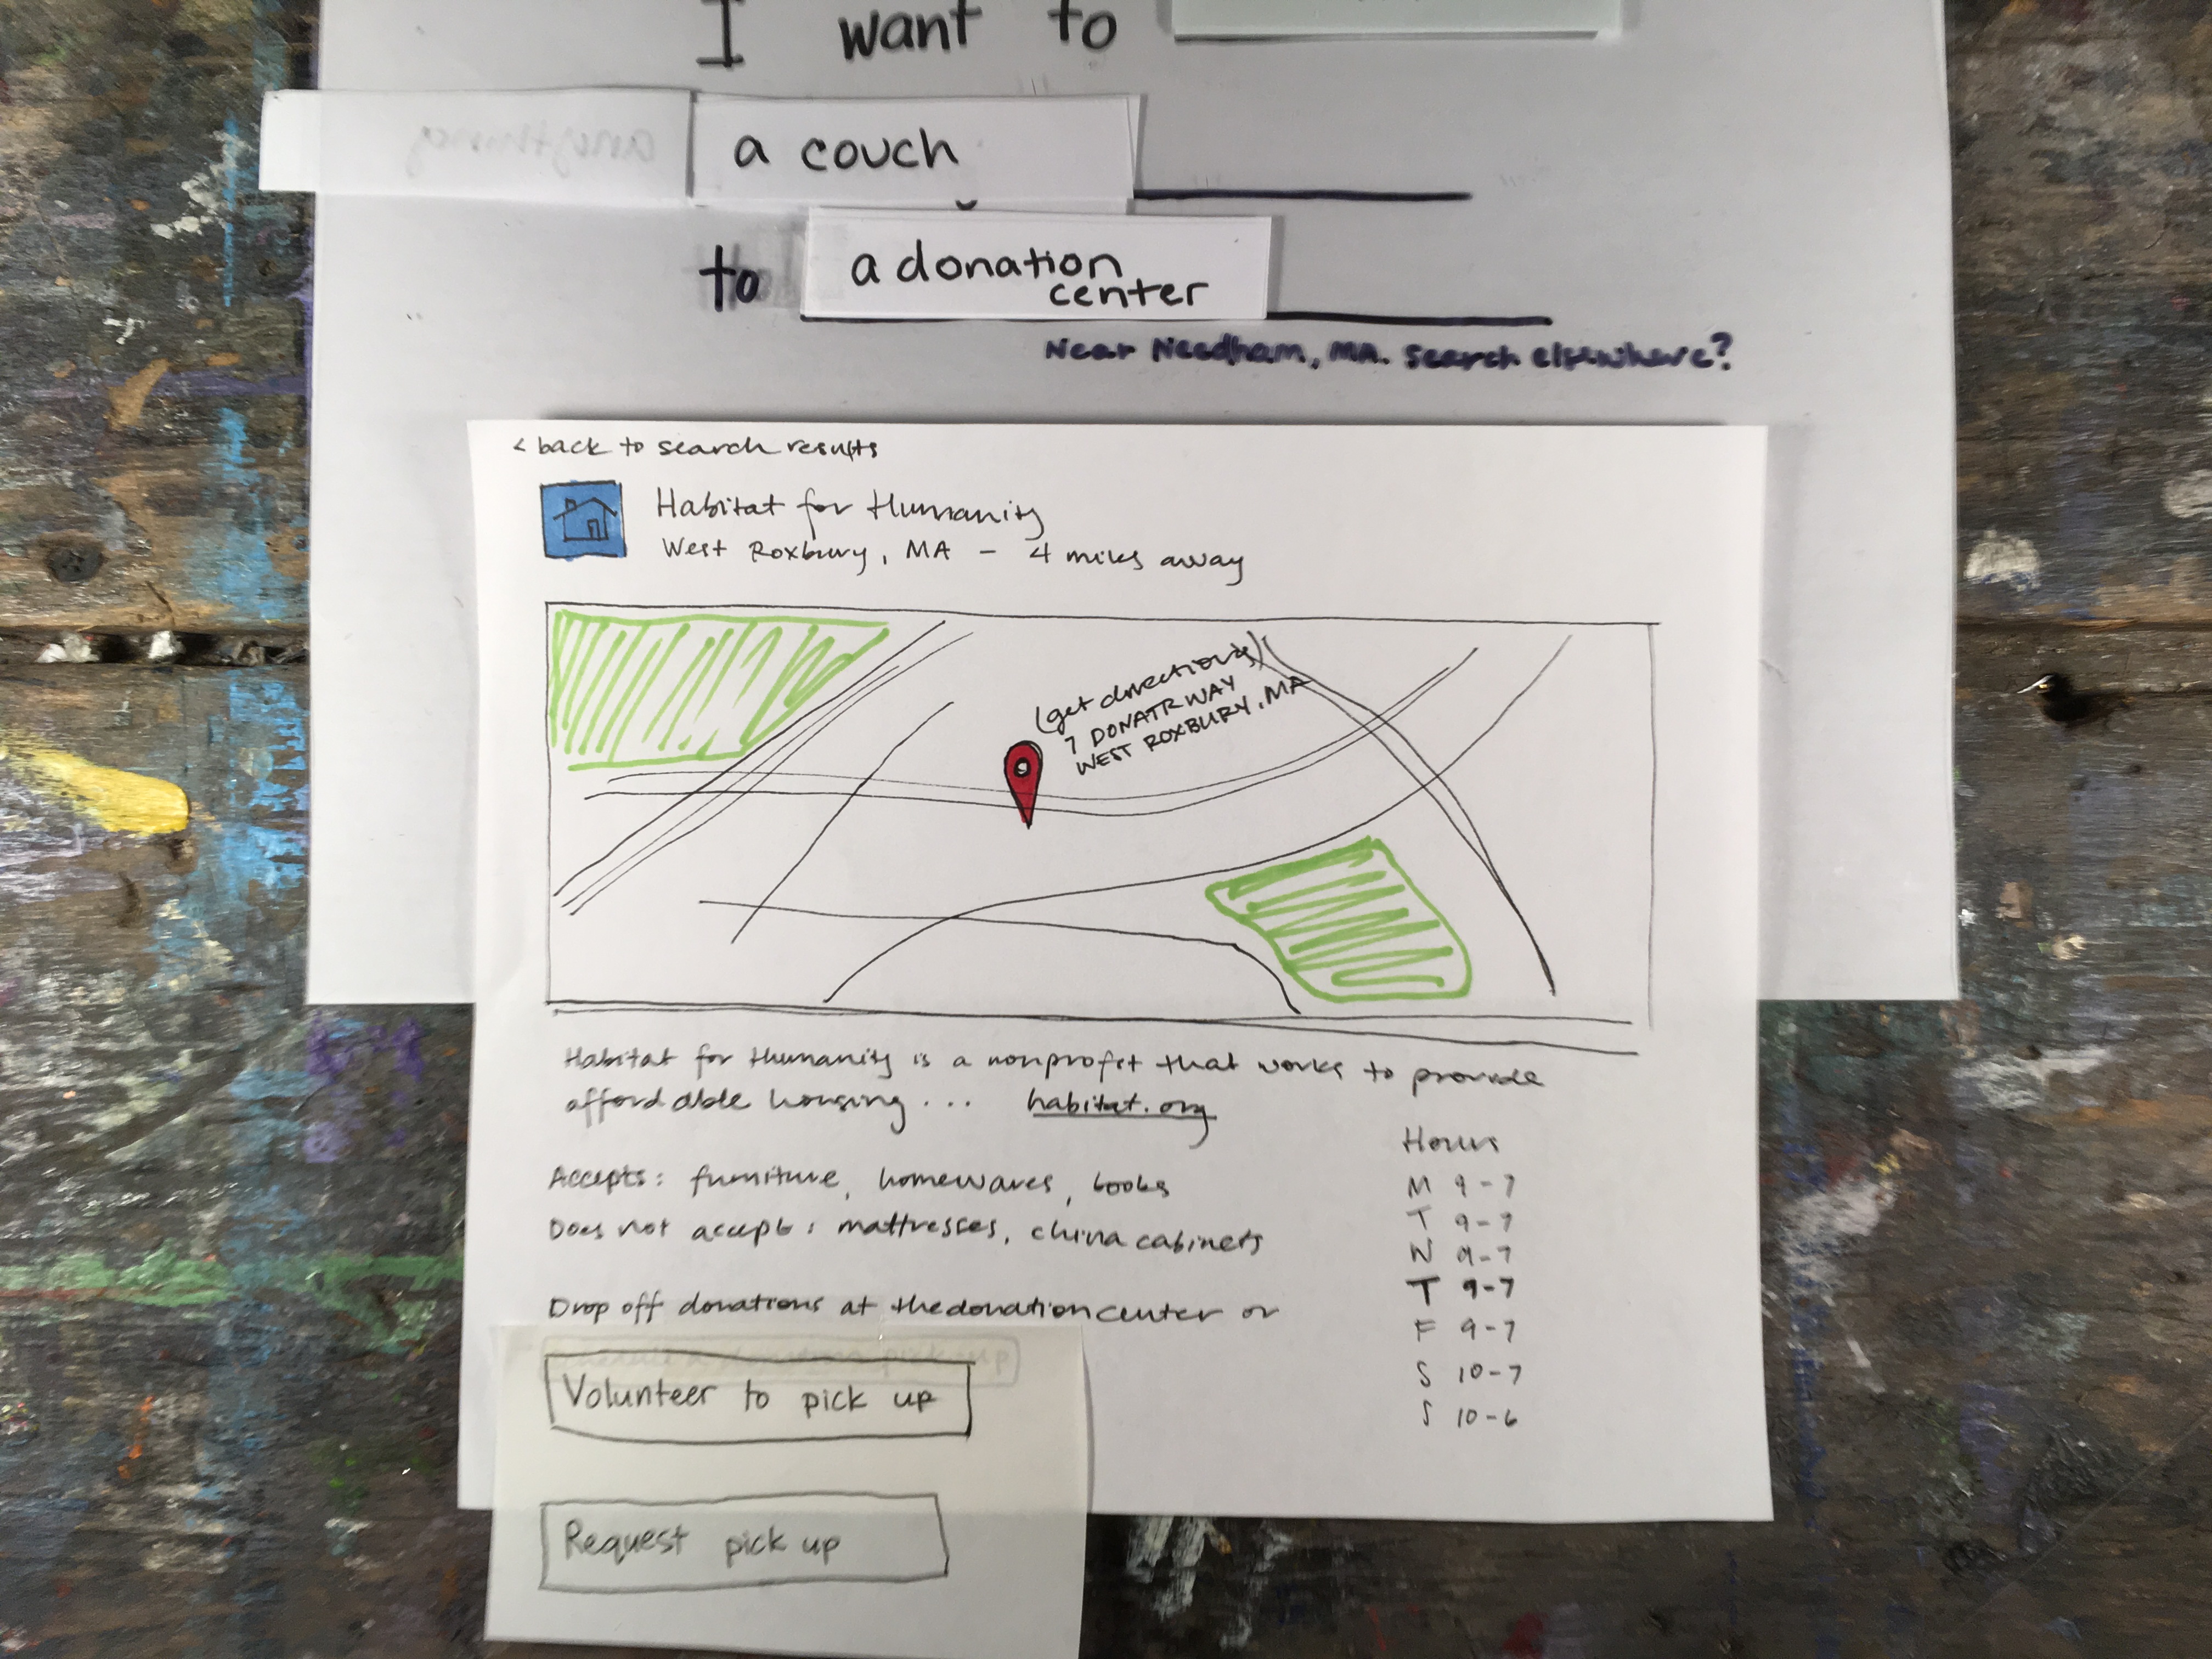 I want to
a couch
to a donation
center
Near Needham, MA. Search elsewhere?
< back to search results
Habitat for Humanity
West Roxbury, MA - 4 miles away
(get directions)
7 DONATR WAY
WEST ROXBURY, MA
Habitat for Humanity is a nonprofit that works to provide
affordable housing... habitat.org
Accepts: furniture, homewares, books
Does not accept: mattresses, china cabinets
Drop off donations at the donation center or
Volunteer to pick up
Request pick up
Hours
M 9-7
T 9-7
W 9-7
T 9-7
F 9-7
S 10-7
S 10-6